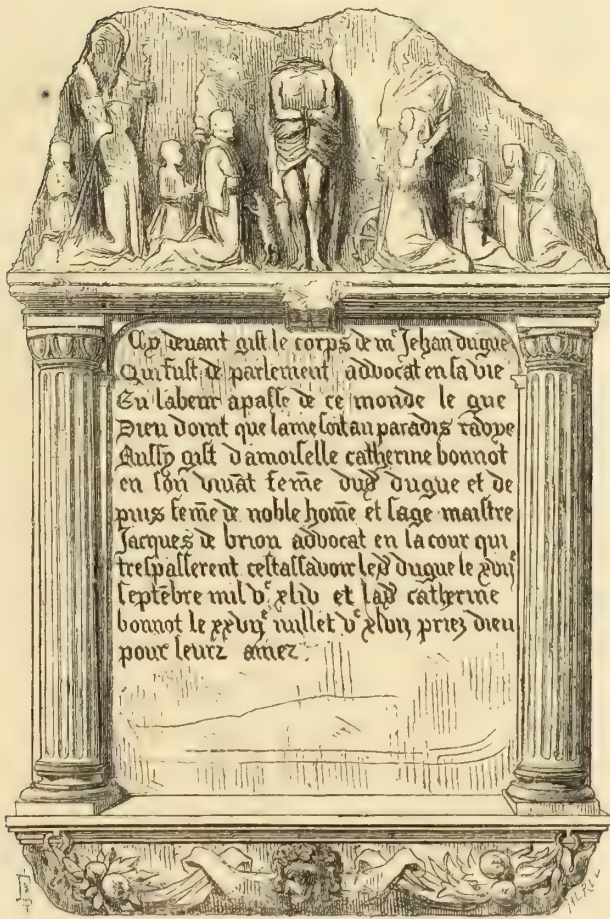 Cy devant gist le corps de mᵉ Jehan dugue
Qui fust de parlement advocat en sa vie
En labeur a passe de ce monde le gue
Dieu doint que lame soit au paradis ravye
Aussy gist damoiselle catherine bonnot
en son vivāt feme dud dugue et de
puis feme de noble home et sage maistre
Jacques de brion advocat en la cour qui
trespasserent cest assavoir led dugue le xviiᵉ
septēbre mil vᶜ xliv et lad catherine
bonnot le xxviiᵉ iuillet vᶜ xlvii priez dieu
pour leurz amez